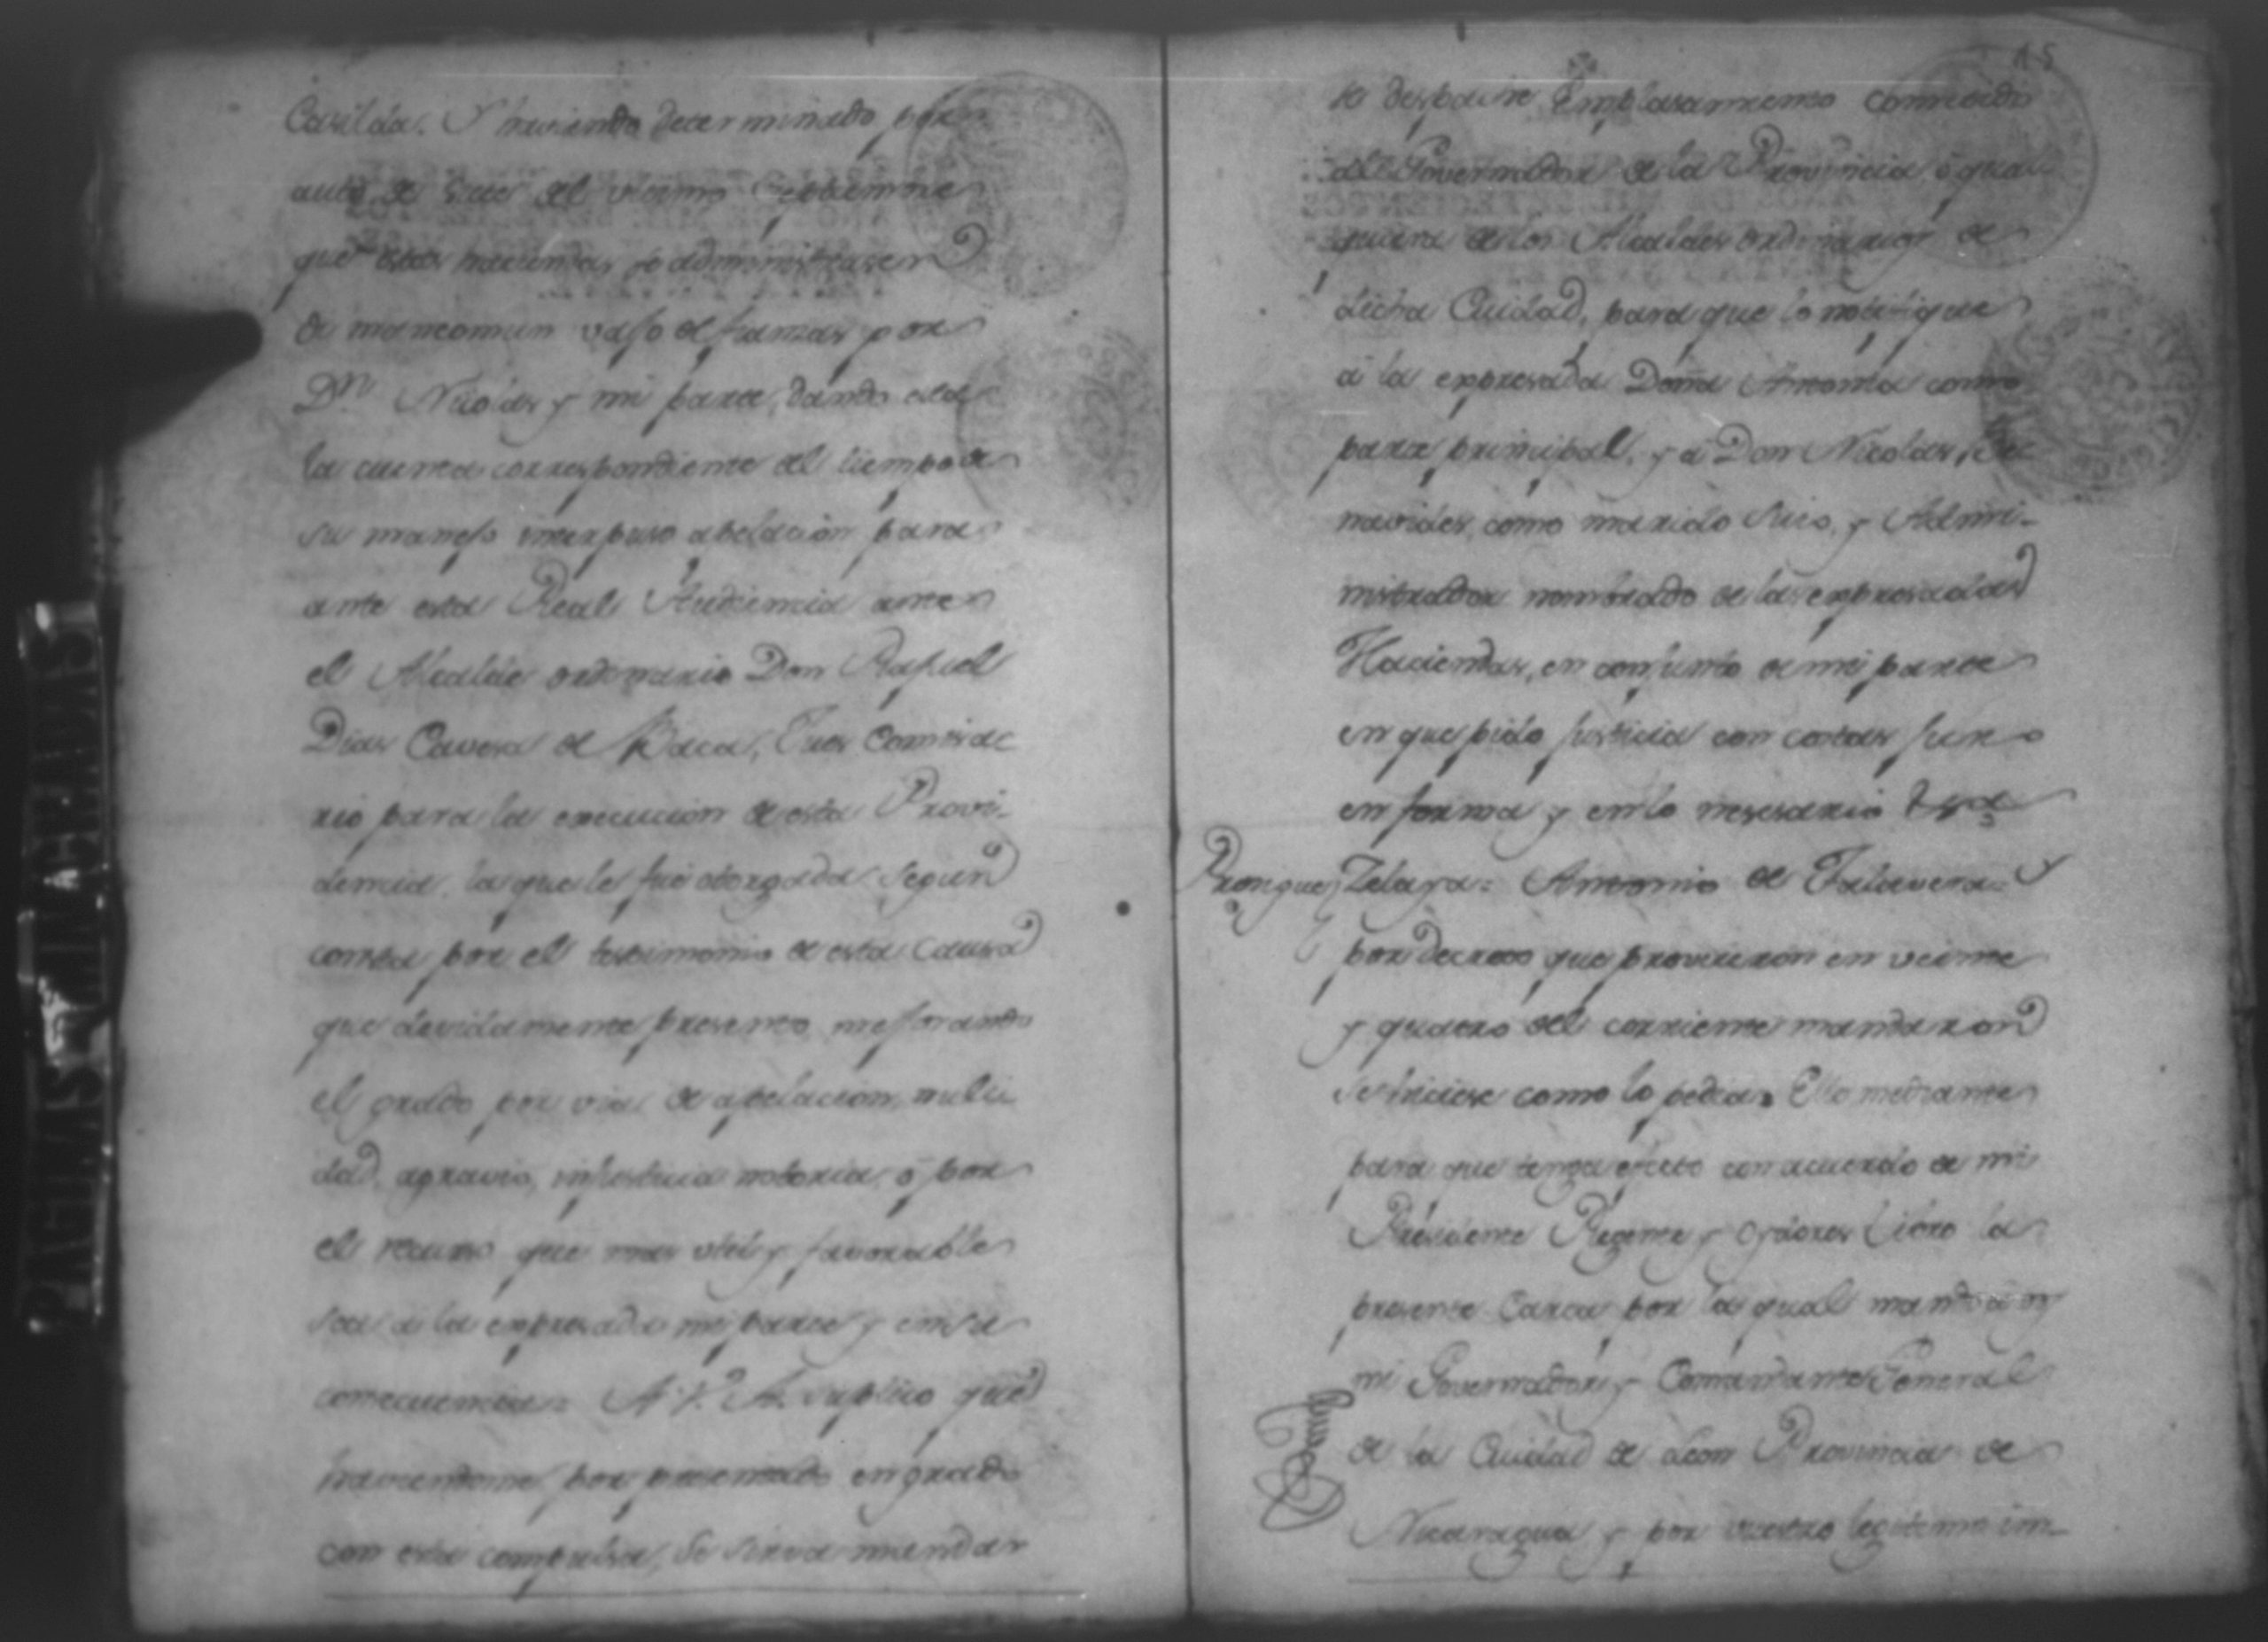 Casilda. Y haviendo determinado por
auto de siete del ultimo Septiembre
que estas haciendas se administrasen
de mancomun vajo de fianzas por
Dn. Nicolas y mi parte, dando esta
la cuenta correspondiente del tiempo de
su manejo interpuso apelacion para
ante esta Real Audiencia ante
el Alcalde ordinario Don Rafael
Dias Cavesa de Baca, Jues Comisa
rio para la execucion de esta Provi-
dencia, la que le fue otorgada segun
consta por el testimonio de esta Causa
que devidamente presento, mejorando
el grado por via de apelacion, nuli
dad, agravio, injusticia notoria, ó por
el recurso que mas util y favorable
sea a la expresada mi parte y en su
consecuencia = A V. A. suplico que
haviendome por presentado en grado
con esta compulsa, se sirva mandar
15
se despache Emplasamiento cometido
al Governador de la Provincia, ó qual
quiera de los Alcaldes ordinarios de
dicha Ciudad, para que lo notifique
a la expresada Doña Antonia como
parte principal, y a Don Nicolas, Be
navides, como marido suio, y Admi-
nistrador nombrado de las expresadas
Haciendas, en conjunto de mi parte
en que pido justicia con costas juro
en forma y en lo nesesario
Zelaya = Antonio de Talavera = Y
por decreto que proveieron en veinte
y quatro del corriente mandaron
se hiciese como lo pedia = Ello mediante
para que tenga efecto con acuerdo de mi
Presidente Regente y Oydores libro la
presente Carta por la qual mando a vos
mi Governador y Comandante General
de la Ciudad de Leon Provincia de
Nicaragua y por vuestro legitimo im-